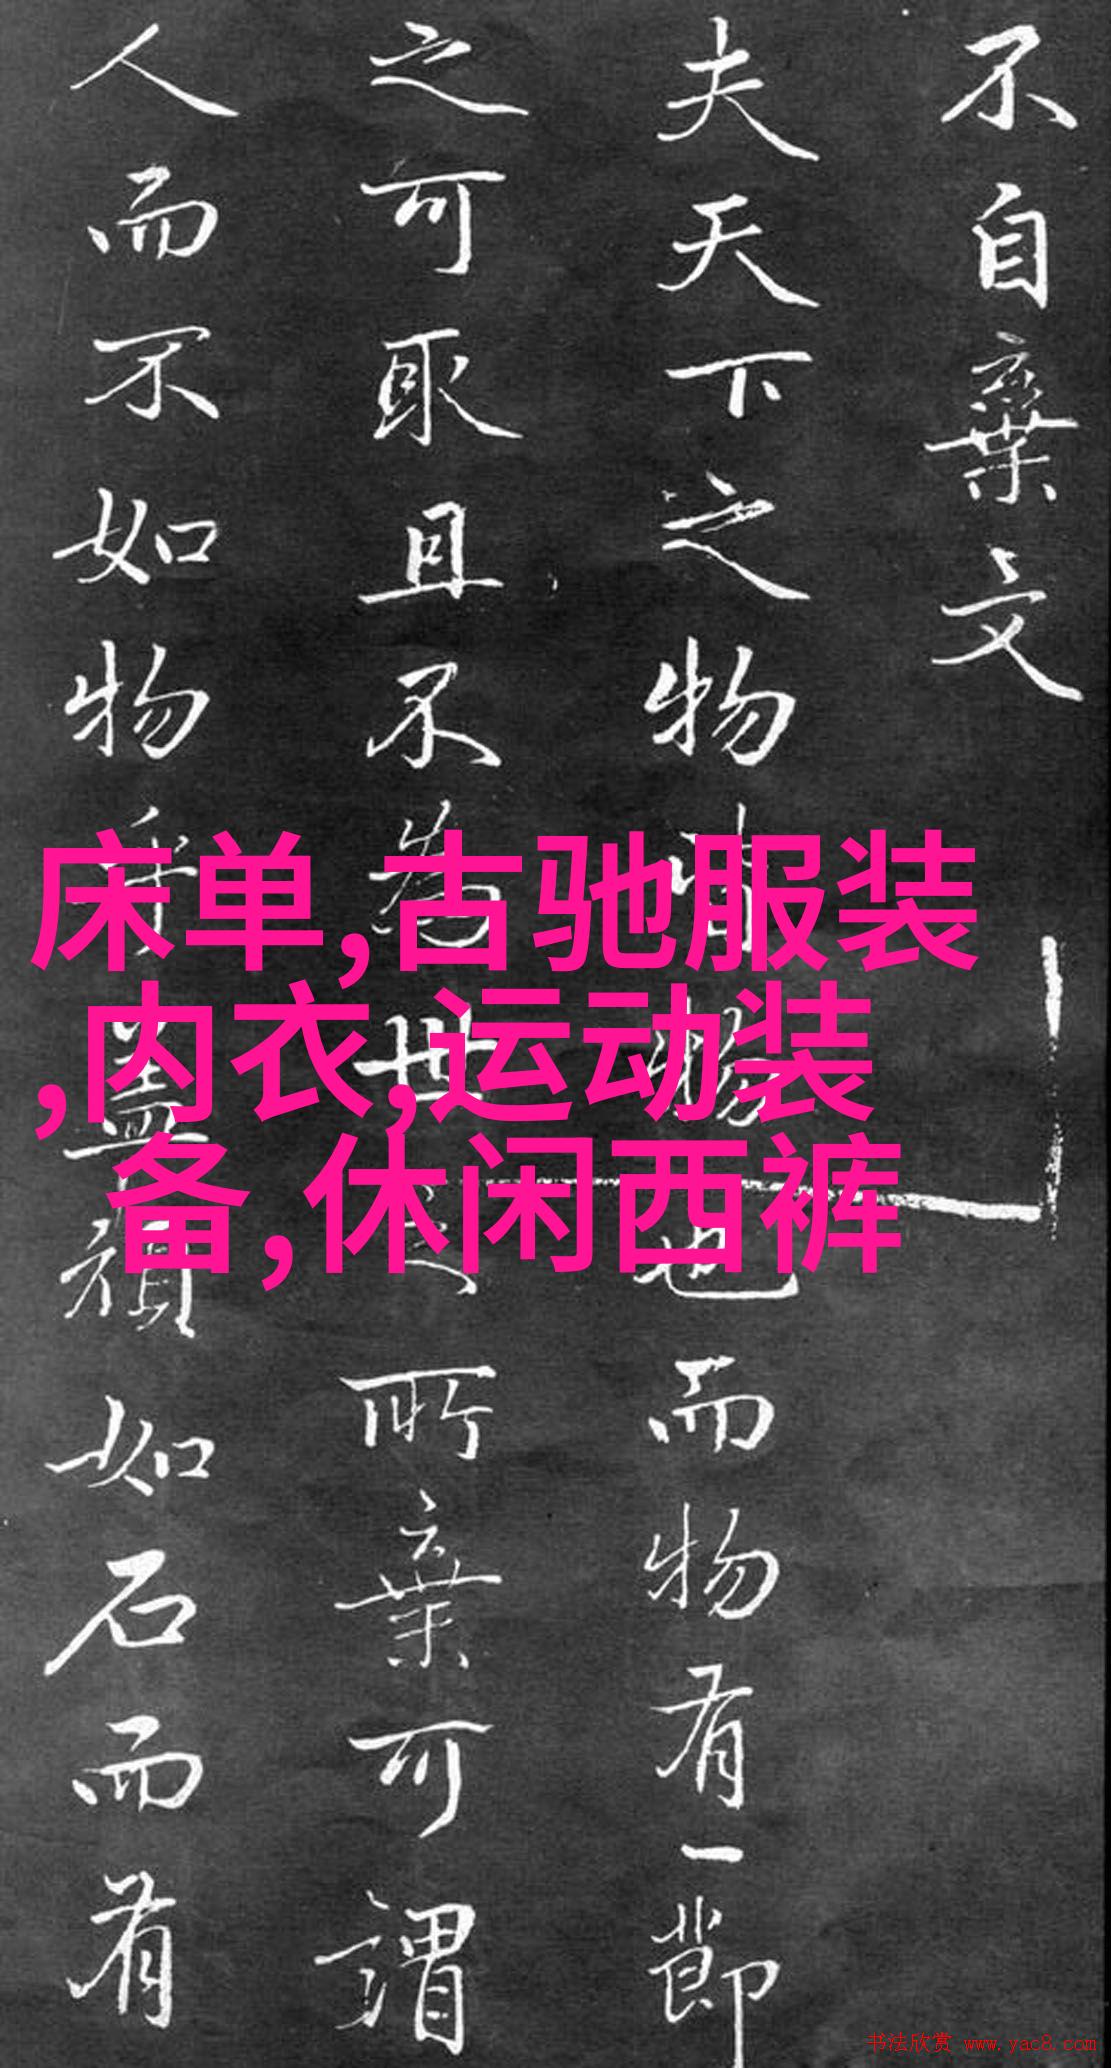 不自棄文
夫天下之物皆物也而物有一節
之可取且不為世之所棄可謂
人而不如物乎蓋頑如石而有
床单,古驰服装
,内衣,运动装
备,休闲西裤
书法欣赏 www.yac8.com